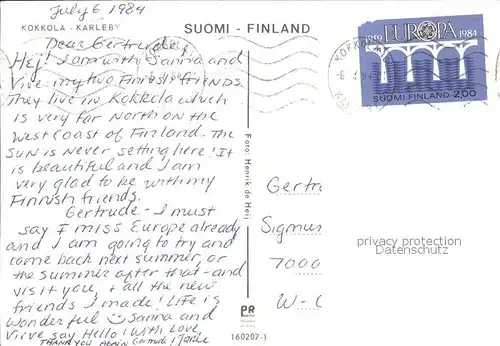 July 6 1984
KOKKOLA - KARLEBY
SUOMI - FINLAND
Dear Gertrude,
Hej! I am with Sanna and
Virve. my two Finnish friends.
They live in Kokkola which
is very far North on the
West Coast of Finland. The
sun is never setting here! It
is beautiful and I am
very glad to be with my
Finnish friends.
Gertrude - I must
say I miss Europe already
and I am going to try and
come back next summer, or
the summer after that - and
visit you, + all the new
friends I made! Life is
wonderful Sanna and
Virve say Hello! With Love,
THANK YOU AGAIN Gertrude!
Foto: Henrik de Heij
PR
160207-1
EUROPA
1959 1984
SUOMI FINLAND 2,00
KOKKOLA
Gertr
Sigmu
7000
W-
privacy protection
Datenschutz